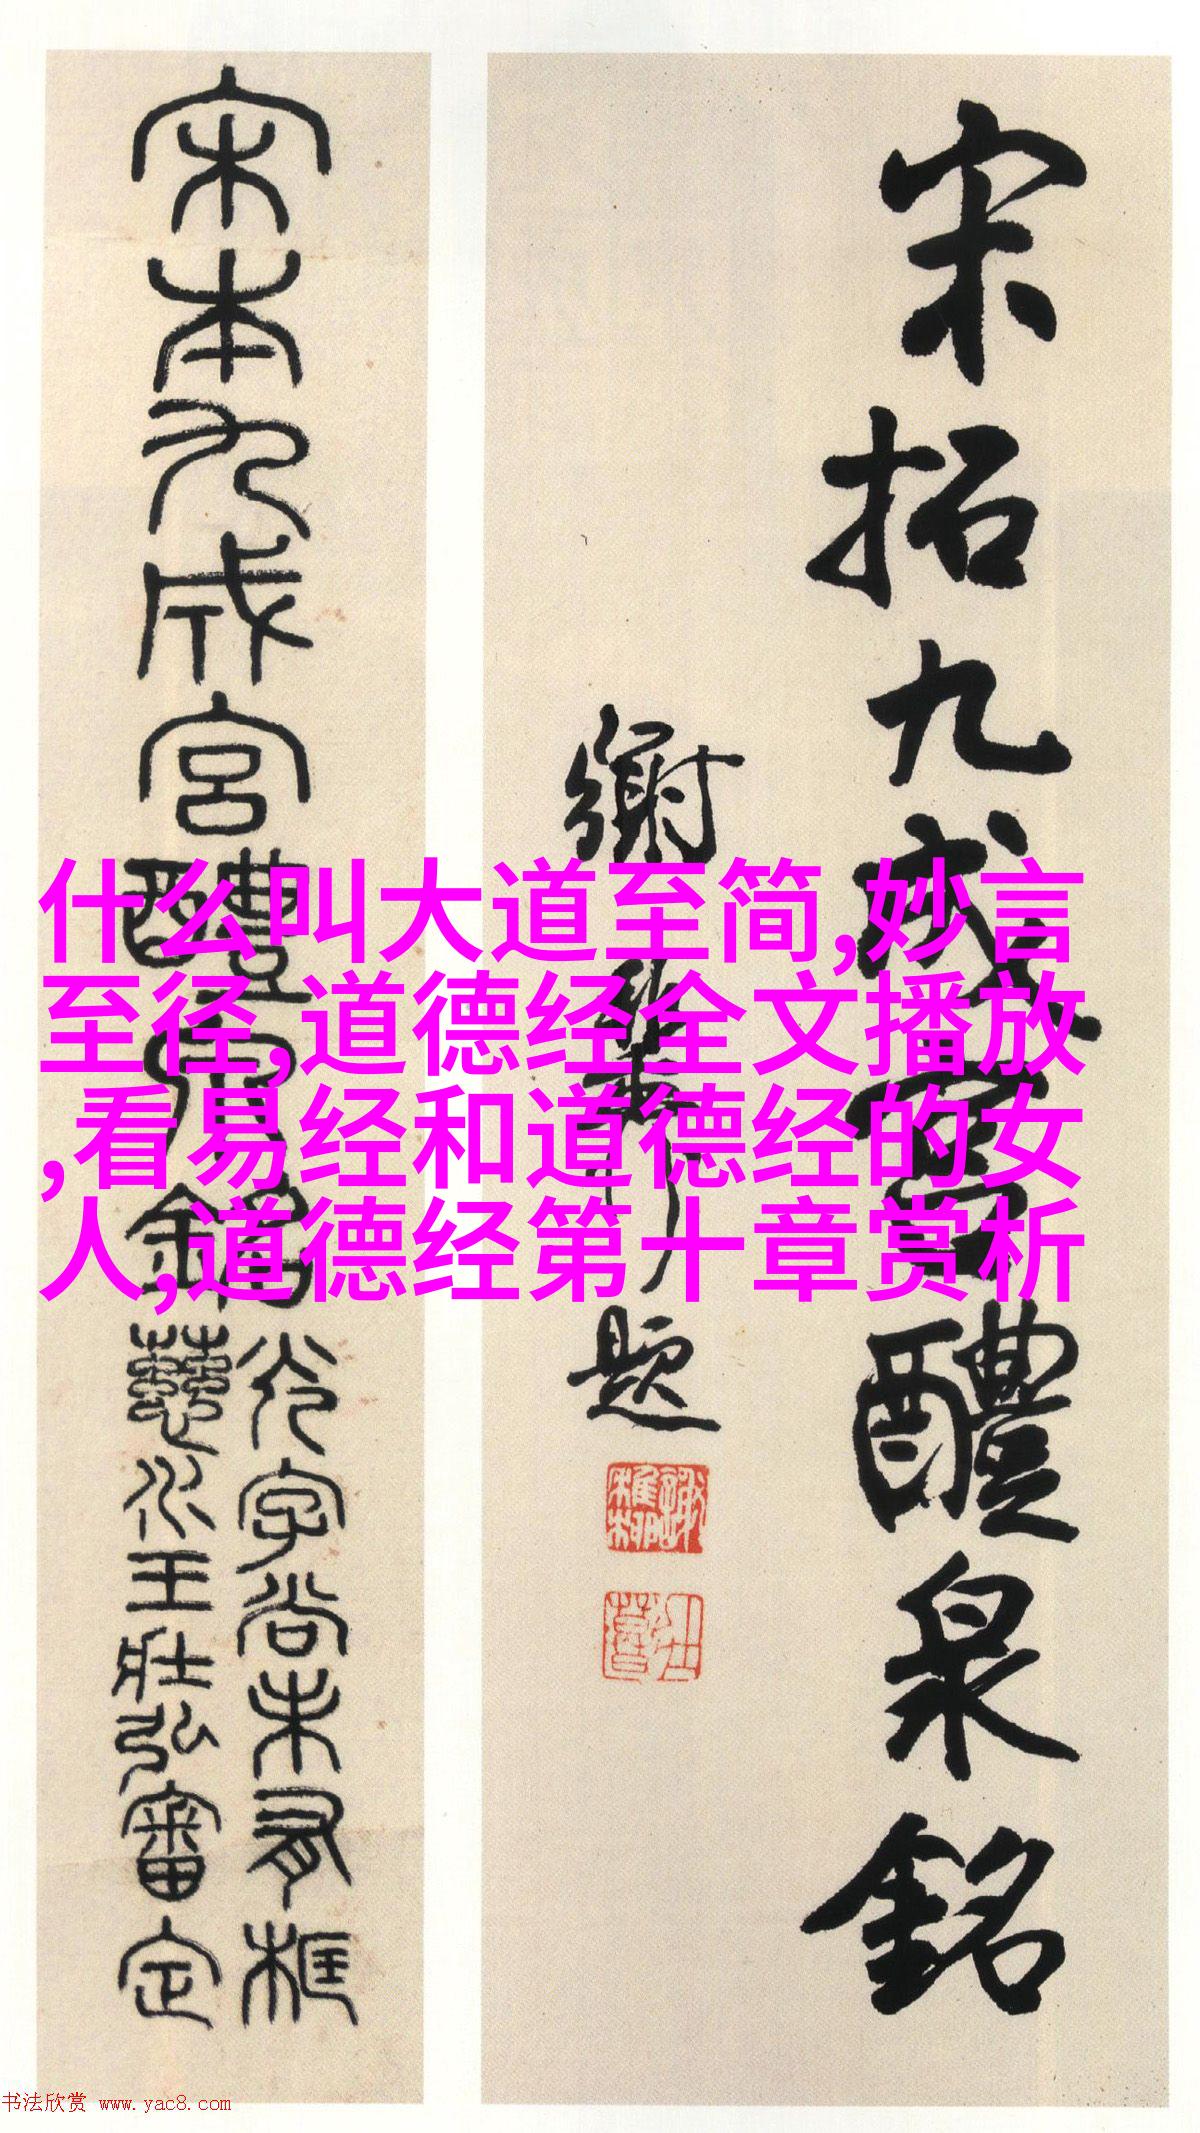 宋拓九成宫醴泉銘
題
宋本九成宮醴泉銘
光字尚未有框
王壮弘審定
什么叫大道至简,妙言
至径,道德经全文播放
,看易经和道德经的女
人,道德经第十章赏析
书法欣赏 www.yac8.com